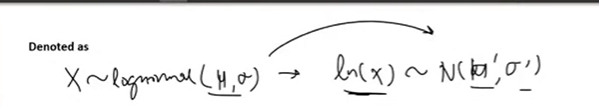 Denoted as
X ~ lognormal(μ,σ) → ln(x) ~ N(μ',σ')